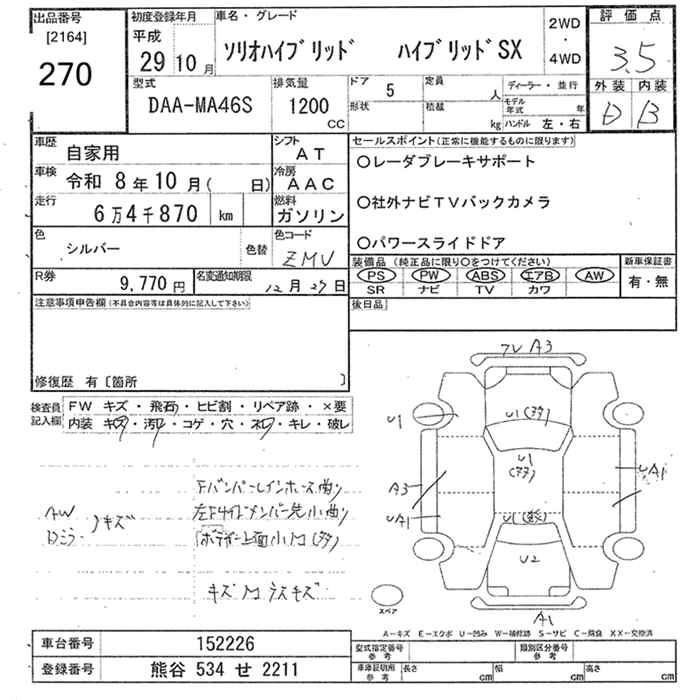 出品番号
[2164]
270
初度登録年月
平成
29 10 月
車名・グレード
ソリオハイブリッド ハイブリッドSX
2WD
・
4WD
評価点
3.5
外装 内装
D B
型式
DAA-MA46S
排気量
1200
CC
ドア
5
定員
人
形状
積載
kg
ディーラー・並行
モデル年式 年
ハンドル 左・右
車歴
自家用
シフト
AT
車検
令和 8年10月( 日)
冷房
AAC
走行
6万4千870 km
燃料
ガソリン
色
シルバー
色替
色コード
ZMV
R券
9,770円
名変通知期限
12月27日
セールスポイント(正常に機能するものに限ります)
○レーダブレーキサポート
○社外ナビTVバックカメラ
○パワースライドドア
装備品 (純正品に限り○をつけてください)
PS PW ABS エアB AW
SR ナビ TV カワ
新車保証書
有・無
後日品
注意事項申告欄(不具合内容等は具体的に記入して下さい)
修復歴 有〔箇所 〕
検査員記入欄
FW キズ・飛石・ヒビ割・リペア跡・×要
内装 キズ・汚れ・コゲ・穴・スレ・キレ・破レ
AW
キズ
キズ
フレA3
U1
U1
U1
A3
UA1
UA1
U1
U2
A1
スペア
A-キズ E-エクボ U-凹み W-補修跡 S-サビ C-腐食 XX-交換済
車台番号
152226
登録番号
熊谷 534 せ 2211
型式指定番号
参考
類別区分番号
参考
車庫証明用
参考
長さ
cm
幅
cm
高さ
cm